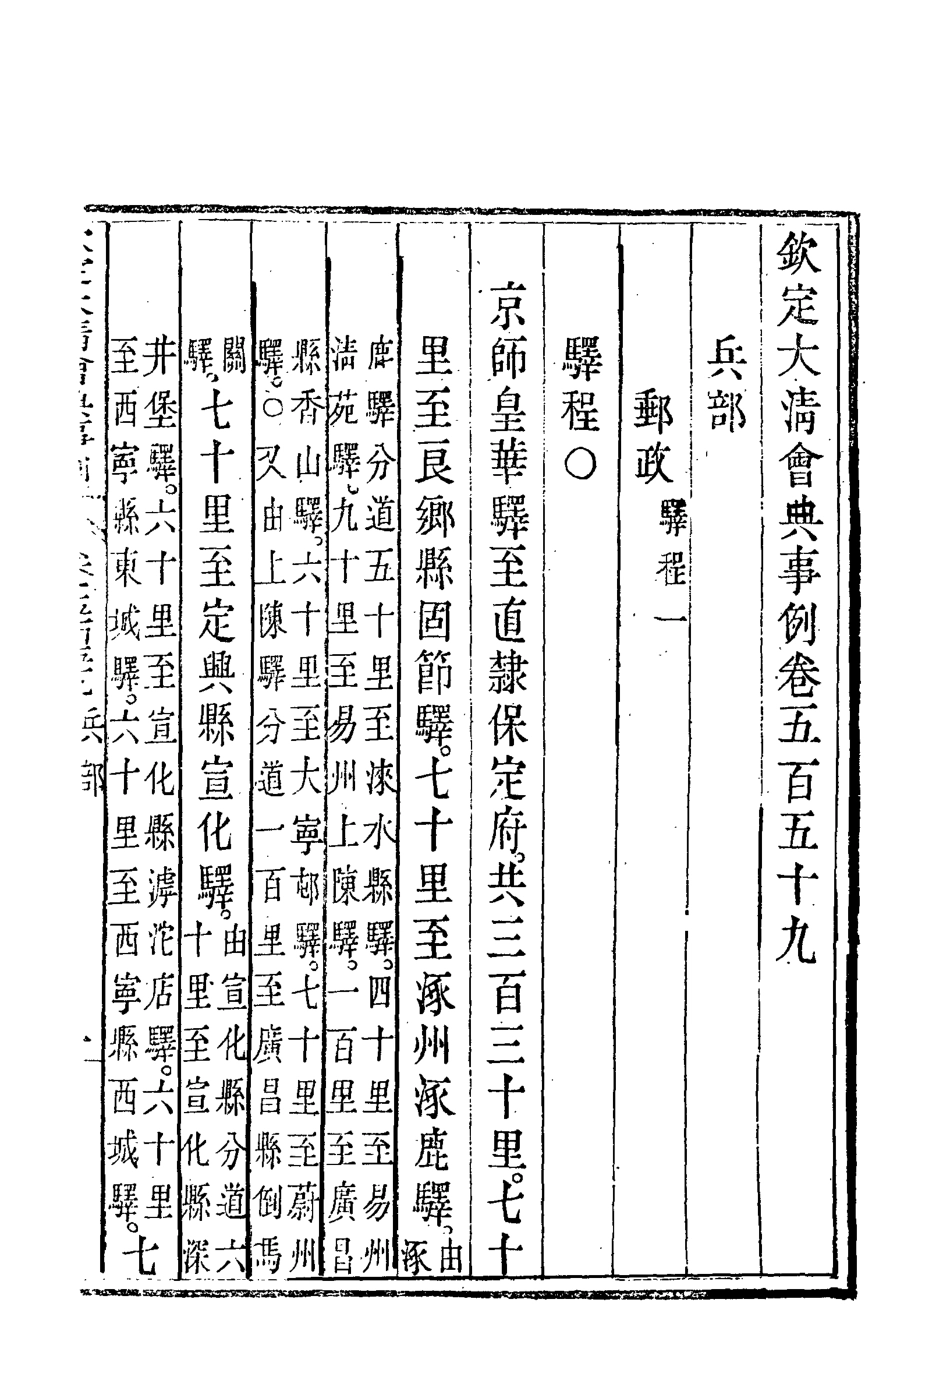 欽定大淸會典事例卷五百五十九
兵部
郵政 驛程一
驛程○
京師皇華驛至直隸保定府。共三百三十里。七十
里至良鄉縣固節驛。七十里至涿州涿鹿驛。由涿
鹿驛分道五十里至淶水縣驛。四十里至易州
淸苑驛。九十里至易州上陳驛。一百里至廣昌
縣香山驛。六十里至大寧邨驛。七十里至蔚州
驛。○又由上陳驛分道一百里至廣昌縣倒馬
關
驛。七十里至定興縣宣化驛。由宣化縣分道六
十里至宣化縣深
井堡驛。六十里至宣化縣滹沱店驛。六十里
至西寧縣東城驛。六十里至西寧縣西城驛。七
兵部